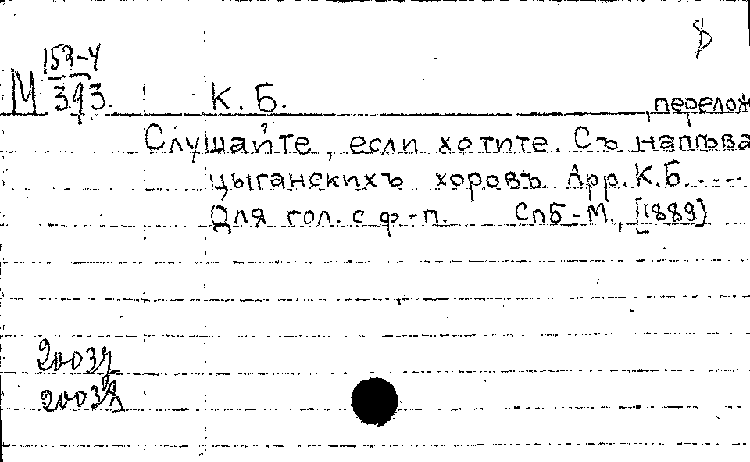 М 159-4
393. К. Б. , перелож
Слушайте, если хотите. Съ напѣва
цыганскихъ хоровъ Арр. К. Б. ....
Для гол. с ф.-п. СпБ-М., [1889]